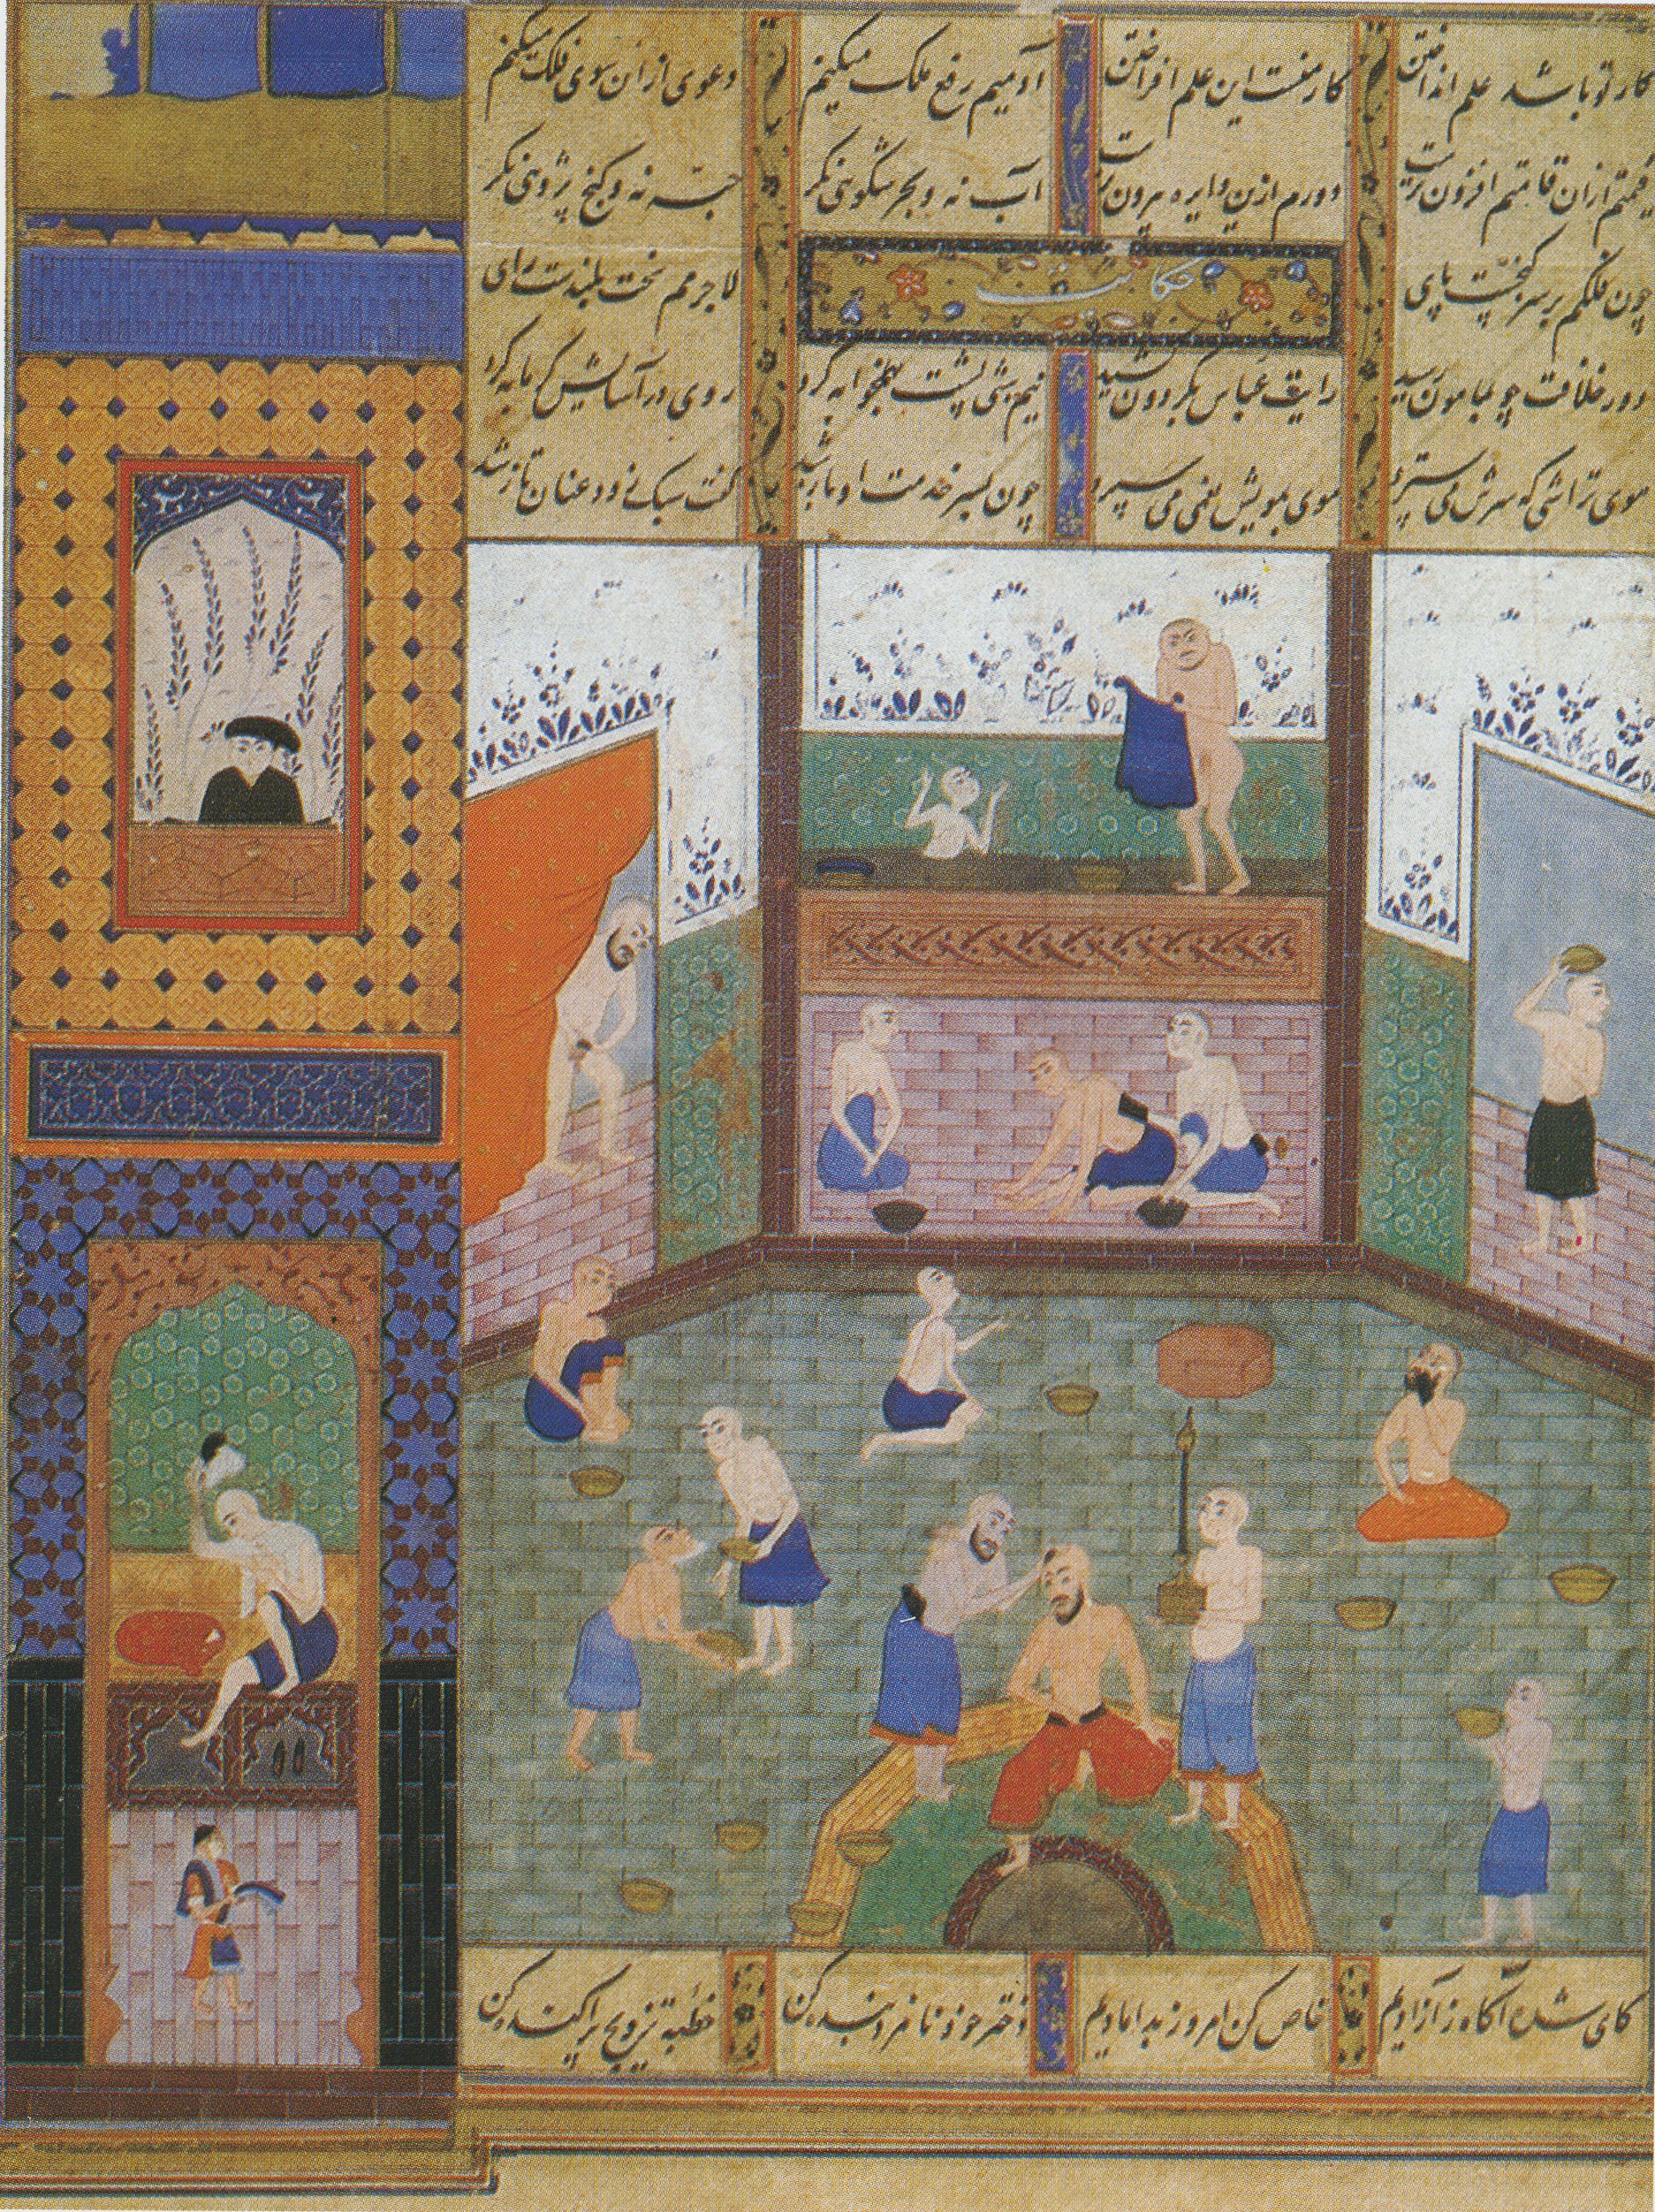 کار تو باشد علم انداختن کار منست این علم افراختن آدمیم رفع ملک میکنم دعوی ازان سوی فلک میکنم
قیمتم ازان قامتم افزونترست دورم ازین دایره بیرونترست آب نه و بحر شکوهی نگر جبه نه و گنج پژوهی نگر
چون فلکم بر سر گنجست پای لاجرمم سخت بلندست رای
حکایت
دور خلافت چو بمامون رسید رایت عباس بگردون رسید نیم شبی پشت بهمخوابه کرد روی در آسایش گرمابه کرد
موی تراشی که سرش می سترد موی بمویش بغمی می سپرد چون بسر خدمت او باز شد گفت عنان تاز شد
کای شده آگاه ز آزادیم خاص کن امروز بدامادیم دختر خود نامزد بنده کن خطبه تزویج پراکنده کن